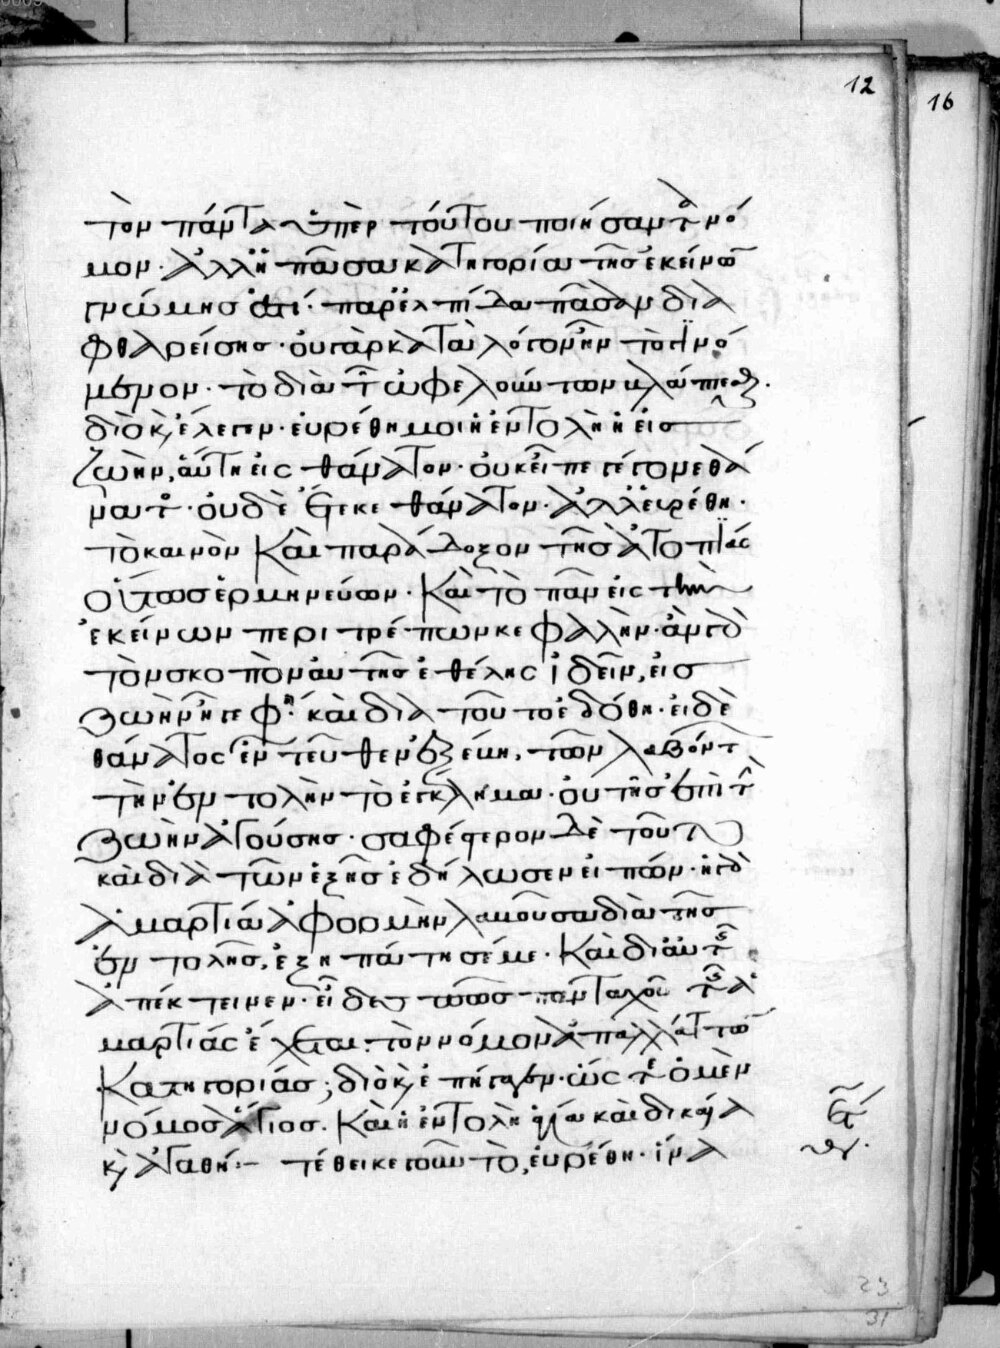 12
16
τὸν πάντα ὑπὲρ τούτου ποιήσαντ νό
μον. ἀλλ' ἡ πᾶσα κατηγορία τῆς ἐκείνων
γνώμης ἐστί. παρ' ἐλπίδα πᾶσαν δια
φθαρείσης. οὐ γὰρ κατὰ λόγον ἦν τὸ γινό
μενον. τὸ διὰ τῶν ὠφελούντων βλάπτεσθαι.
διὸ κ ἔλεγεν. εὑρέθη μοι ἡ ἐντολὴ ἡ εἰς
ζωὴν, αὕτη εἰς θάνατον. οὐκ εἶπε γέγονε θά
νατος. οὐδὲ ἔτεκε θάνατον. ἀλλ' εὑρέθη.
τὸ καινὸν καὶ παράδοξον τῆς ἀτοπίας
οὕτως ἑρμηνεύων. καὶ τὸ πᾶν εἰς τὴν
ἐκείνων περιτρέπων κεφαλήν. ἂν γὰρ
τὸν σκοπὸν αὐτῆς ἐθέλῃς ἰδεῖν, εἰς
ζωὴν ἦγε φη. καὶ διὰ τοῦτο ἐδόθη. εἰ δὲ
θάνατος ἐντεῦθεν ἐξέβη, τῶν λαβόντ
τὴν ἐντολὴν τὸ ἔγκλημα. οὐ τῆς ἐπὶ τ
ζωὴν ἀγούσης. σαφέστερον δὲ τοῦτο
καὶ διὰ τῶν ἑξῆς ἐδήλωσεν εἰπών. ἡ γὰρ
ἁμαρτία ἀφορμὴν λαβοῦσα διὰ τῆς
ἐντολῆς, ἐξηπάτησέ με. καὶ δι' αὐτῆς
ἀπέκτεινεν. εἶδες πῶς πανταχοῦ τῆς ἁ
μαρτίας ἔχεται. τὸν νόμον ἀπαλλάττων
κατηγορίας; διὸ κ ἐπήγαγεν. ὥστε ὁ μὲν
νόμος ἅγιος. καὶ ἡ ἐντολὴ ἁγία καὶ δικαία
κ ἀγαθή:— τέθεικε γοῦν τὸ, εὑρέθη. ἵνα
23
31